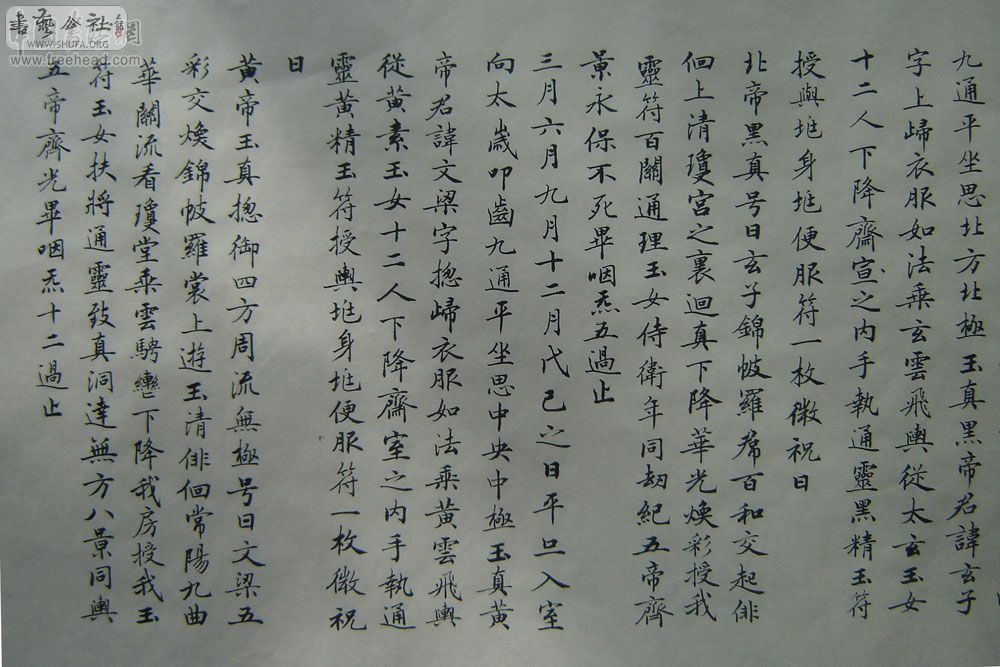 九通平坐思北方北極玉真黑帝君諱玄子
字上歸衣服如法乘玄雲飛輿從太玄玉女
十二人下降齋室之内手執通靈黑精玉符
授與㘴身㘴便服符一枚微祝曰
北帝黑真号曰玄子錦帔羅席百和交起俳
佪上清瓊宮之裏迴真下降華光煥彩授我
靈符百關通理玉女侍衛年同劫紀五帝齊
景永保不死畢咽炁五過止
三月六月九月十二月戊己之日平旦入室
向太歲叩齒九通平坐思中央中極玉真黃
帝君諱文梁字揔歸衣服如法乘黃雲飛輿
從黃素玉女十二人下降齋室之内手執通
靈黃精玉符授與㘴身㘴便服符一枚微祝
曰
黃帝玉真揔御四方周流無極号曰文梁五
彩交煥錦帔羅裳上遊玉清俳佪常陽九曲
華關流看瓊堂乘雲騁轡下降我房授我玉
符玉女扶將通靈致真洞達無方八景同輿
五帝齊光畢咽炁十二過止
書藝公社
WWW.SHUFA.ORG
www.freehead.com